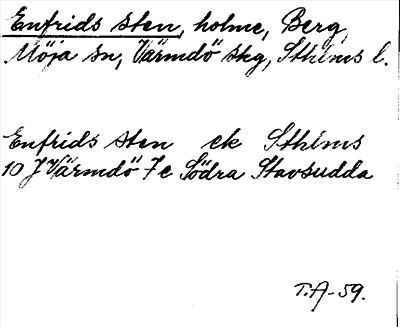 Enfrids sten, holme, Berg,
Möja sn, Värmdö skg, Sthlms l.
Enfrids sten ek Sthlms
10 J Värmdö 7 e Södra Stavsudda
T.A-59.